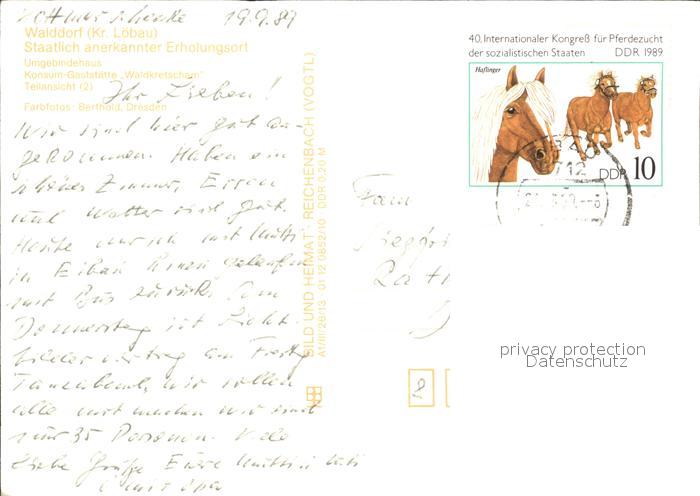 19.9.89
Walddorf (Kr. Löbau)
Staatlich anerkannter Erholungsort
Umgebindehaus
Konsum-Gaststätte „Waldkretscham"
Teilansicht (2)
Farbfotos: Berthold, Dresden
Ihr Lieben!
Wir sind hier gut an-
gekommen. Haben ein
schönes Zimmer, Essen
und Wetter sind gut.
Heute
in Eibau gelaufen
mit Bus zurück. Am
Donnerstag ist Licht-
bildervortrag am Freitag
Tanzabend, wir sollen
alle mit machen wir sind
nur 35 Personen. Viele
liebe Grüße Eure Mutti
BILD UND HEIMAT REICHENBACH (VOGTL)
A1/III/26/13 01 12 0852/10 DDR 0,20 M
40. Internationaler Kongreß für Pferdezucht
der sozialistischen Staaten DDR 1989
Haflinger
DDR 10
Fam
privacy protection
Datenschutz